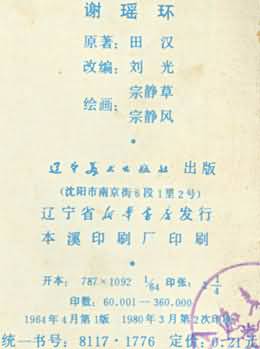 谢瑶环
原著：田汉
改编：刘光
绘画：宗静草
宗静风
辽宁美术出版社 出版
(沈阳市南京街6段1里2号)
辽宁省新华书店发行
本溪印刷厂印刷
开本：787×1092 1/64 印张：
印数：60,001—360,000
1964年4月第1版 1980年3月第2次印刷
统一书号：8117·1776 定价：0.21元